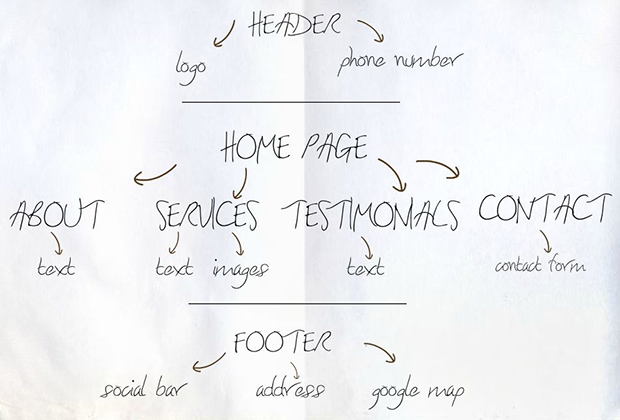 HEADER
logo phone number
HOME PAGE
ABOUT SERVICES TESTIMONIALS CONTACT
text text images text contact form
FOOTER
social bar address google map